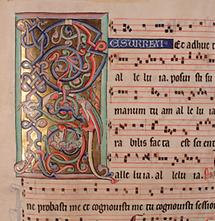 RESURREXI Et adhuc t
al le lu ia. posui sti su
manum tu am al le lu ia.
bilis fac ta est sci en
alle luia. al lelu ia.
ne probasti me et cognouisti me tu cognouisti session